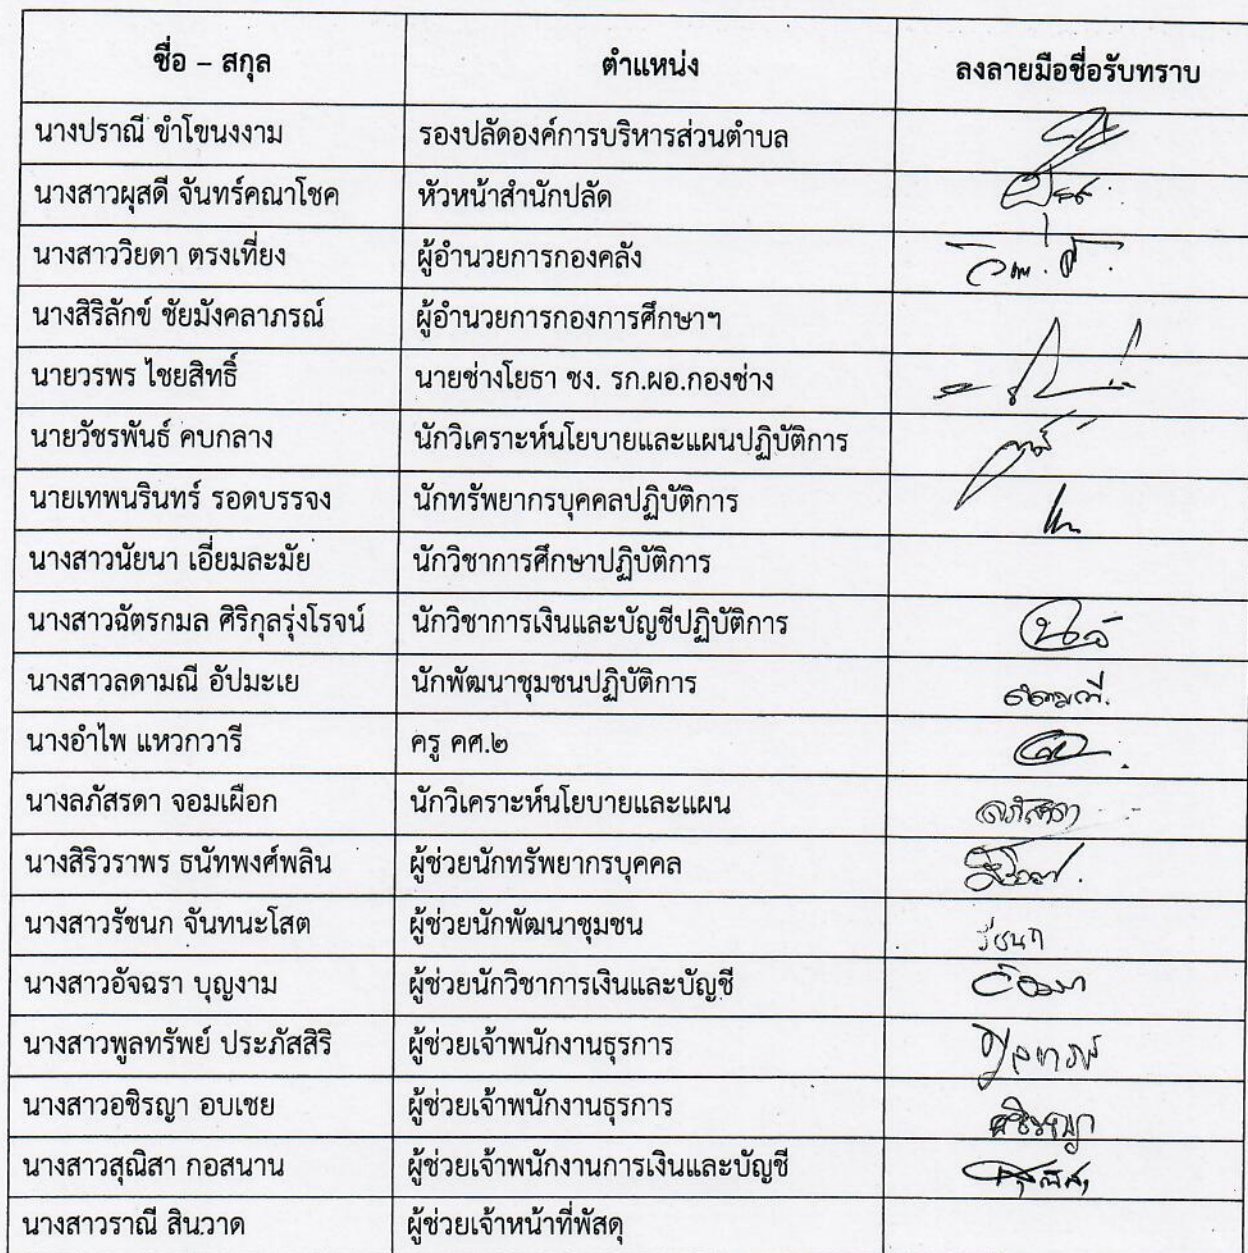 ชื่อ – สกุล ตำแหน่ง ลงลายมือชื่อรับทราบ
นางปราณี ขำโขนงงาม รองปลัดองค์การบริหารส่วนตำบล
นางสาวผุสดี จันทร์คณาโชค หัวหน้าสำนักปลัด
นางสาววิยดา ตรงเที่ยง ผู้อำนวยการกองคลัง
นางสิริลักข์ ชัยมังคลาภรณ์ ผู้อำนวยการกองการศึกษาฯ
นายวรพร ไชยสิทธิ์ นายช่างโยธา ชง. รก.ผอ.กองช่าง
นายวัชรพันธ์ คบกลาง นักวิเคราะห์นโยบายและแผนปฏิบัติการ
นายเทพนรินทร์ รอดบรรจง นักทรัพยากรบุคคลปฏิบัติการ
นางสาวนัยนา เอี่ยมละมัย นักวิชาการศึกษาปฏิบัติการ
นางสาวฉัตรกมล ศิริกุลรุ่งโรจน์ นักวิชาการเงินและบัญชีปฏิบัติการ
นางสาวลดามณี อัปมะเย นักพัฒนาชุมชนปฏิบัติการ ลดามณี.
นางอำไพ แหวกวารี ครู คศ.๒
นางลภัสรดา จอมเผือก นักวิเคราะห์นโยบายและแผน ลภัสรดา
นางสิริวราพร ธนัทพงศ์พลิน ผู้ช่วยนักทรัพยากรบุคคล
นางสาวรัชนก จันทนะโสต ผู้ช่วยนักพัฒนาชุมชน รัชนก
นางสาวอัจฉรา บุญงาม ผู้ช่วยนักวิชาการเงินและบัญชี
นางสาวพูลทรัพย์ ประภัสสิริ ผู้ช่วยเจ้าพนักงานธุรการ
นางสาวอชิรญา อบเชย ผู้ช่วยเจ้าพนักงานธุรการ อชิรญา
นางสาวสุณิสา กอสนาน ผู้ช่วยเจ้าพนักงานการเงินและบัญชี สุณิสา
นางสาวราณี สินวาด ผู้ช่วยเจ้าหน้าที่พัสดุ